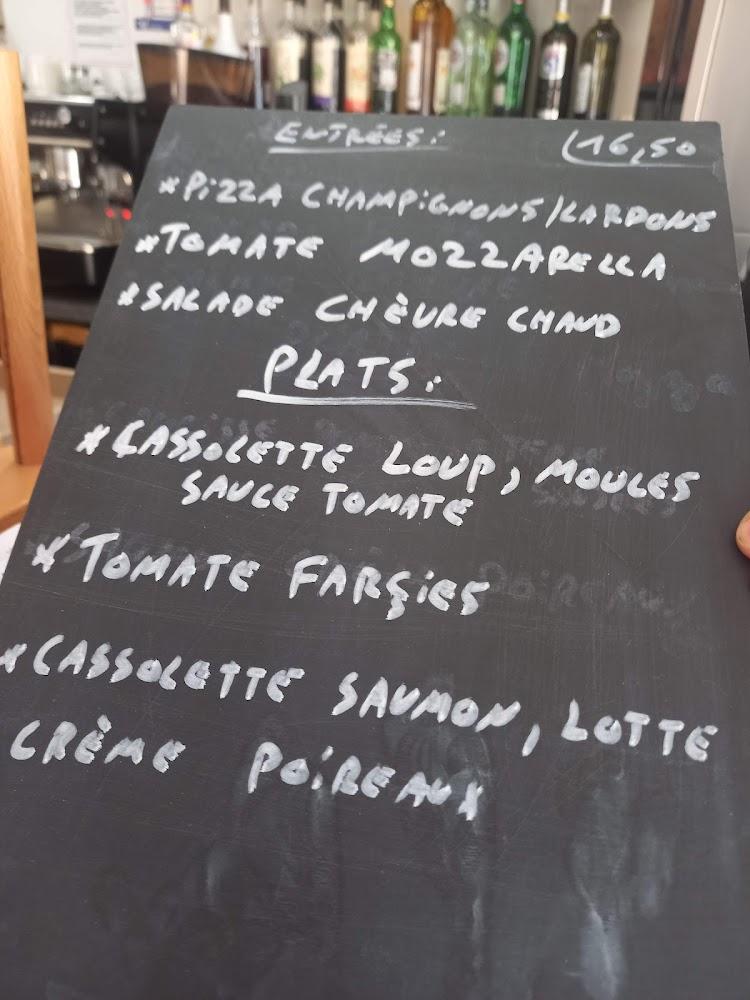 ENTRÉES: 16,50
*PiZZA CHAMPiGNONS/LARDONS
*TOMATE MOZZARELLA
*SALADE CHÈVRE CHAUD
PLATS:
*CASSOLETTE LOUP, MOULES
SAUCE TOMATE
*TOMATE FARÇiES
*CASSOLETTE SAUMON, LOTTE
CRÈME POiREAUX